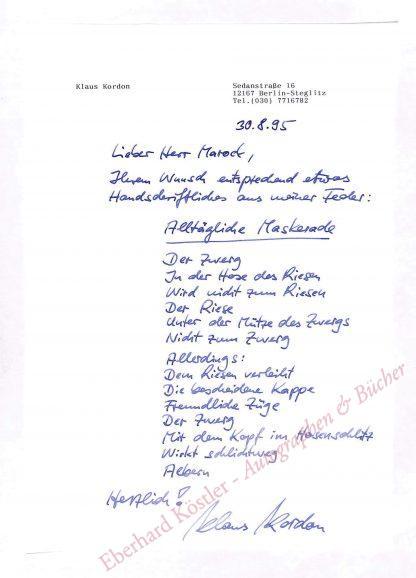 Klaus Kordon
Sedanstraße 16
12167 Berlin-Steglitz
Tel.(030) 7716782
30.8.95
Lieber Herr Marock,
Ihrem Wunsch entsprechend etwas
Handschriftliches aus meiner Feder:
Alltägliche Maskerade
Der Zwerg
In der Hose des Riesen
Wird nicht zum Riesen
Der Riese
Unter der Mütze des Zwergs
Nicht zum Zwerg
Allerdings:
Dem Riesen verleiht
Die bescheidene Kappe
Freundliche Züge
Der Zwerg
Mit dem Kopf im Hosenschlitz
Wirkt schlichtweg
Albern
Herzlich!
Klaus Kordon
Eberhard Köstler - Autographen & Bücher